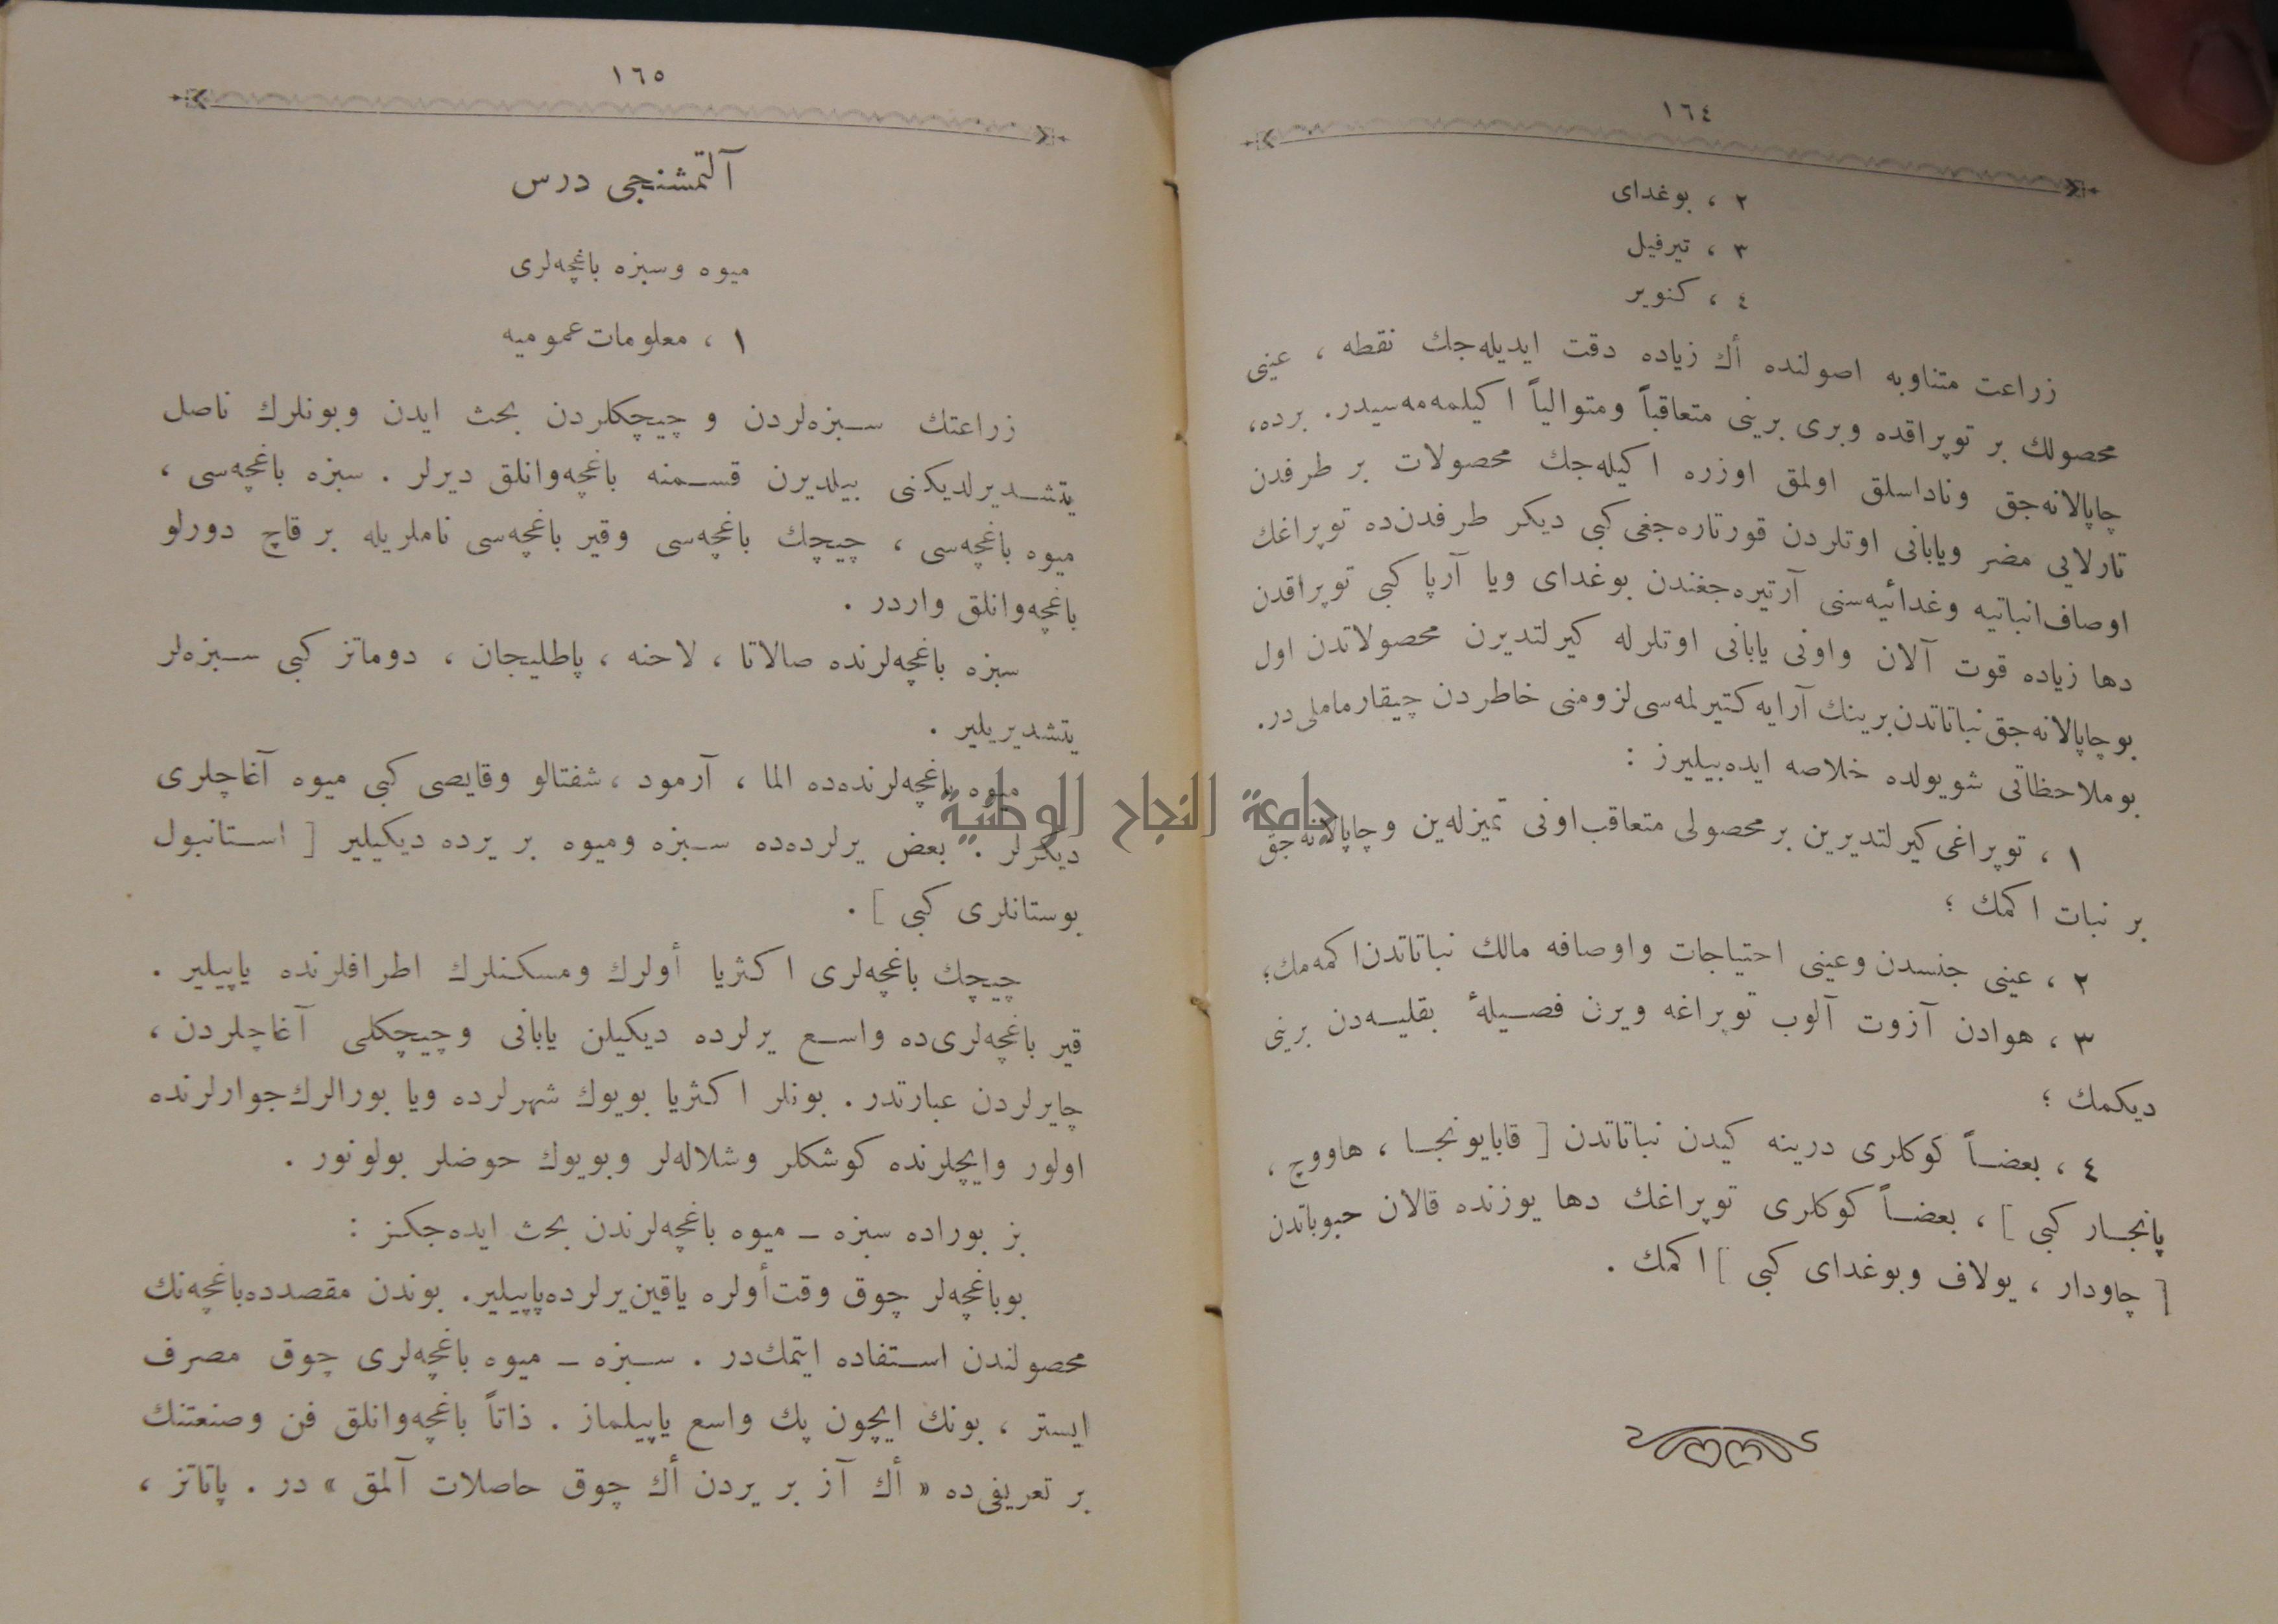 ١٦٤
٢ ، بوغدای
٣ ، تیرفیل
٤ ، کنویر
زراعت متناوبه اصولنده أك زیاده دقت ایدیله‌جك نقطه ، عینی
محصولك بر توپراقده وبری برینی متعاقباً ومتوالیاً اکیلمه‌مه‌سیدر. برده،
چاپالانه‌جق وناداسلق اولمق اوزره اکیله‌جك محصولات بر طرفدن
تارلایی مضر ویابانی اوتلردن قورتاره‌جغی کبی دیکر طرفدن‌ده توپراغك
اوصاف‌انباتیه وغدائیه‌سنی آرتیره‌جغندن بوغدای ویا آرپا کبی توپراقدن
دها زیاده قوت آلان واونی یابانی اوتلرله کیرلتدیرن محصولاتدن اول
بو چاپالانه‌جق نباتاتدن برینك آرایه کتیرلمه‌سی لزومنی خاطردن چیقارماملی‌در.
بو ملاحظاتی شویولده خلاصه ایده‌بیلیرز :
١ ، توپراغی کیرلتدیرین بر محصولی متعاقب اونی تمیزله‌ین وچاپالانه‌جق
بر نبات اکمك ؛
٢ ، عینی جنسدن وعینی احتیاجات واوصافه مالك نباتاتدن اکمه‌مك؛
٣ ، هوادن آزوت آلوب توپراغه ویرن فصیلهٔ بقلیه‌دن برینی
دیکمك ؛
٤ ، بعضاً کوکلری درینه کیدن نباتاتدن [ قابایونجا ، هاووچ ،
پانجار کبی ] ، بعضاً کوکلری توپراغك دها یوزنده قالان حبوباتدن
[ چاودار ، یولاف وبوغدای کبی ] اکمك .
١٦٥
آلتمشنجی درس
میوه وسبزه باغچه‌لری
١ ، معلومات عمومیه
زراعتك سبزه‌لردن و چیچکلردن بحث ایدن وبونلرك ناصل
یتشدیرلدیکنی بیلدیرن قسمنه باغچه‌وانلق دیرلر . سبزه باغچه‌سی ،
میوه باغچه‌سی ، چیچك باغچه‌سی وقیر باغچه‌سی ناملریله بر قاچ دورلو
باغچه‌وانلق واردر .
سبزه باغچه‌لرنده صالاتا ، لاحنه ، پاطلیجان ، دوماتز کبی سبزه‌لر
یتشدیریلیر .
میوه باغچه‌لرنده‌ده الما ، آرمود ، شفتالو وقایصی کبی میوه آغاچلری
دیکرلر . بعض یرلرده‌ده سبزه ومیوه بر یرده دیکیلیر [ استانبول
بوستانلری کبی ] .
چیچك باغچه‌لری اکثریا أولرك ومسکنلرك اطرافلرنده یاپیلیر .
قیر باغچه‌لری‌ده واسع یرلرده دیکیلن یابانی وچیچکلی آغاچلردن ،
چایرلردن عبارتدر . بونلر اکثریا بویوك شهرلرده ویا بورالرك جوارلرنده
اولور وایچلرنده کوشکلر وشلاله‌لر وبویوك حوضلر بولونور .
بز بوراده سبزه ـ میوه باغچه‌لرندن بحث ایده‌جکز :
بوباغچه‌لر چوق وقت أولره یاقین یرلرده یاپیلیر. بوندن مقصدده باغچه‌نك
محصولندن استفاده ایتمك‌در . سبزه ـ میوه باغچه‌لری چوق مصرف
ایستر ، بونك ایچون پك واسع یاپیلماز . ذاتاً باغچه‌وانلق فن وصنعتنك
بر تعریفی‌ده « أك آز بر یردن أك چوق حاصلات آلمق » در . پاتاتز ،
جامعة النجاح الوطنية